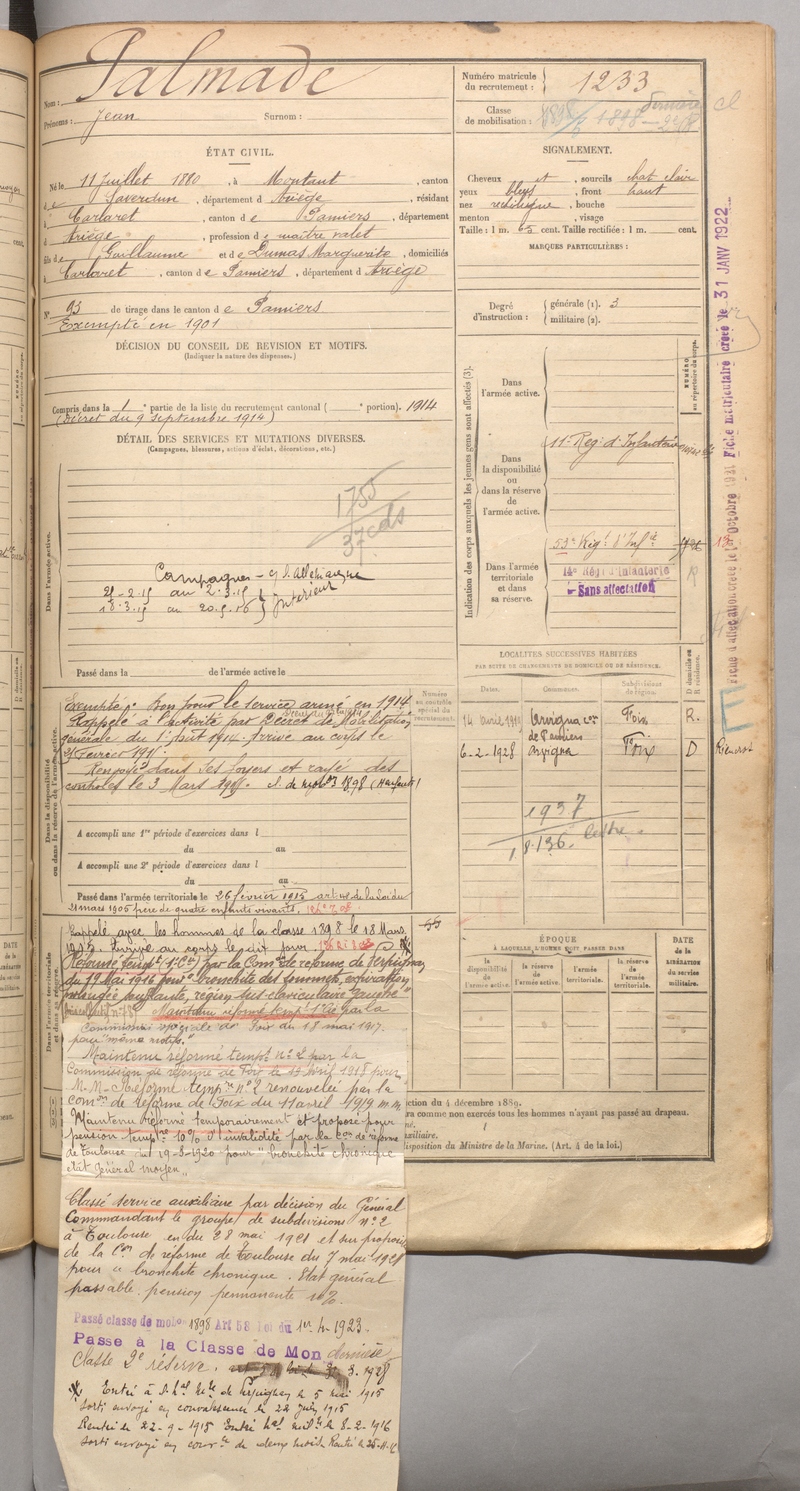 Nom : Palmade
Prénoms : Jean Surnom :
Numéro matricule du recrutement : 1233
Classe de mobilisation : 1898
ÉTAT CIVIL.
Né le 11 Juillet 1880, à Montaut, canton
de Saverdun, département d Ariège, résidant
à Carlaret, canton de Pamiers, département
d Ariège, profession de maître valet
fils de Guillaume et de Dumas Marguerite, domiciliés
à Carlaret, canton de Pamiers, département d Ariège
N° 93 de tirage dans le canton de Pamiers
Exempté en 1901
SIGNALEMENT.
Cheveux et, sourcils chat. clair
yeux bleus, front haut
nez rectiligne, bouche
menton , visage
Taille : 1 m. 65 cent. Taille rectifiée : 1 m. cent.
MARQUES PARTICULIÈRES :
Degré d'instruction : générale (1). 3
militaire (2).
DÉCISION DU CONSEIL DE REVISION ET MOTIFS.
(Indiquer la nature des dispenses.)
Compris dans la 1e partie de la liste du recrutement cantonal ( e portion). 1914
(Décret du 9 septembre 1914)
DÉTAIL DES SERVICES ET MUTATIONS DIVERSES.
(Campagnes, blessures, actions d'éclat, décorations, etc.)
Dans l'armée active.
Campagnes - c/ l. Allemagne
21-2-15 au 2.3.15
18.3.15 au 20.5.16 } Intérieur
Passé dans la de l'armée active le
Indication des corps auxquels les jeunes gens sont affectés (3).
NUMÉRO au répertoire du corps.
Dans l'armée active.
Dans la disponibilité ou dans la réserve de l'armée active.
11e Rég. d'Infanterie
53e Régt d'Infie
Dans l'armée territoriale et dans sa réserve.
14e Régt d'Infanterie
Sans affectation
Fiche matriculaire créée le 31 JANV 1922
LOCALITÉS SUCCESSIVES HABITÉES
PAR SUITE DE CHANGEMENTS DE DOMICILE OU DE RÉSIDENCE.
Dates. Communes. Subdivisions de région. D domicile ou R résidence.
14 avril 1910 Arvigna con de Pamiers Foix R.
6-2-1928 Arvigna Foix D
1937
Dans la disponibilité ou dans la réserve de l'armée active.
Numéro au contrôle spécial du recrutement.
Exempté. Bon pour le service armé en 1914.
Rappelé à l'activité par Décret de Mobilisation
générale du 1er août 1914. Arrivé au corps le
21 Février 1915.
Renvoyé dans ses foyers et rayé des
contrôles le 3 Mars 1915. cl. de mobon 1898
A accompli une 1re période d'exercices dans l
du au
A accompli une 2e période d'exercices dans l
du au
Passé dans l'armée territoriale le 26 février 1915 art 48 de la loi du
21 mars 1905 père de quatre enfants vivants.
Rappelé avec les hommes de la classe 1898 le 18 Mars
1915. Arrivé au corps le dit jour.
Réformé tempt (1re Cie) par la Comon de réforme de Perpignan
du 19 Mai 1916 pour "bronchite des sommets, expiration
prolongée soufflante, région sus-claviculaire gauche"
Maintenu réformé tempt par la
Commission spéciale de Foix du 18 mai 1917.
pour "même motifs."
Maintenu réformé tempt n° 2 par la
Commission de réforme de Foix le 13 Avril 1918 pour
M.M. Réforme tempre n° 2 renouvelée par la
Comon de réforme de Foix du 11 avril 1919 m.m.
Maintenu Réformé temporairement et proposé pour
pension tempre 10% d'invalidité par la Con de réforme
de Toulouse du 19-3-1920 pour "bronchite chronique
état général moyen"
ÉPOQUE
À LAQUELLE L'HOMME DOIT PASSER DANS
la disponibilité de l'armée active. la réserve de l'armée active. l'armée territoriale. la réserve de l'armée territoriale.
DATE de la LIBÉRATION du service militaire.
ction du 4 décembre 1889.
ra comme non exercés tous les hommes n'ayant pas passé au drapeau.
né.
uxiliaire.
disposition du Ministre de la Marine. (Art. 4 de la loi.)
Classé service auxiliaire par décision du Général
Commandant le groupe de subdivisions n° 2
à Toulouse en du 28 mai 1921 et sur proposon
de la Con de réforme de Toulouse du 7 mai 1921
pour "bronchite chronique. Etat général
passable. pension permanente 10%.
Passé classe de mobon 1898 Art 58 Loi du 1er 4-1923.
Passé à la Classe de Mon dernière
classe 2e réserve.
Entré à l'hal de Perpignan le 5 mai 1915
Sorti envoyé en convalescence le 22 Juin 1915
Rentré le 22-9-1915 Entré hal milre le 8-2-1916